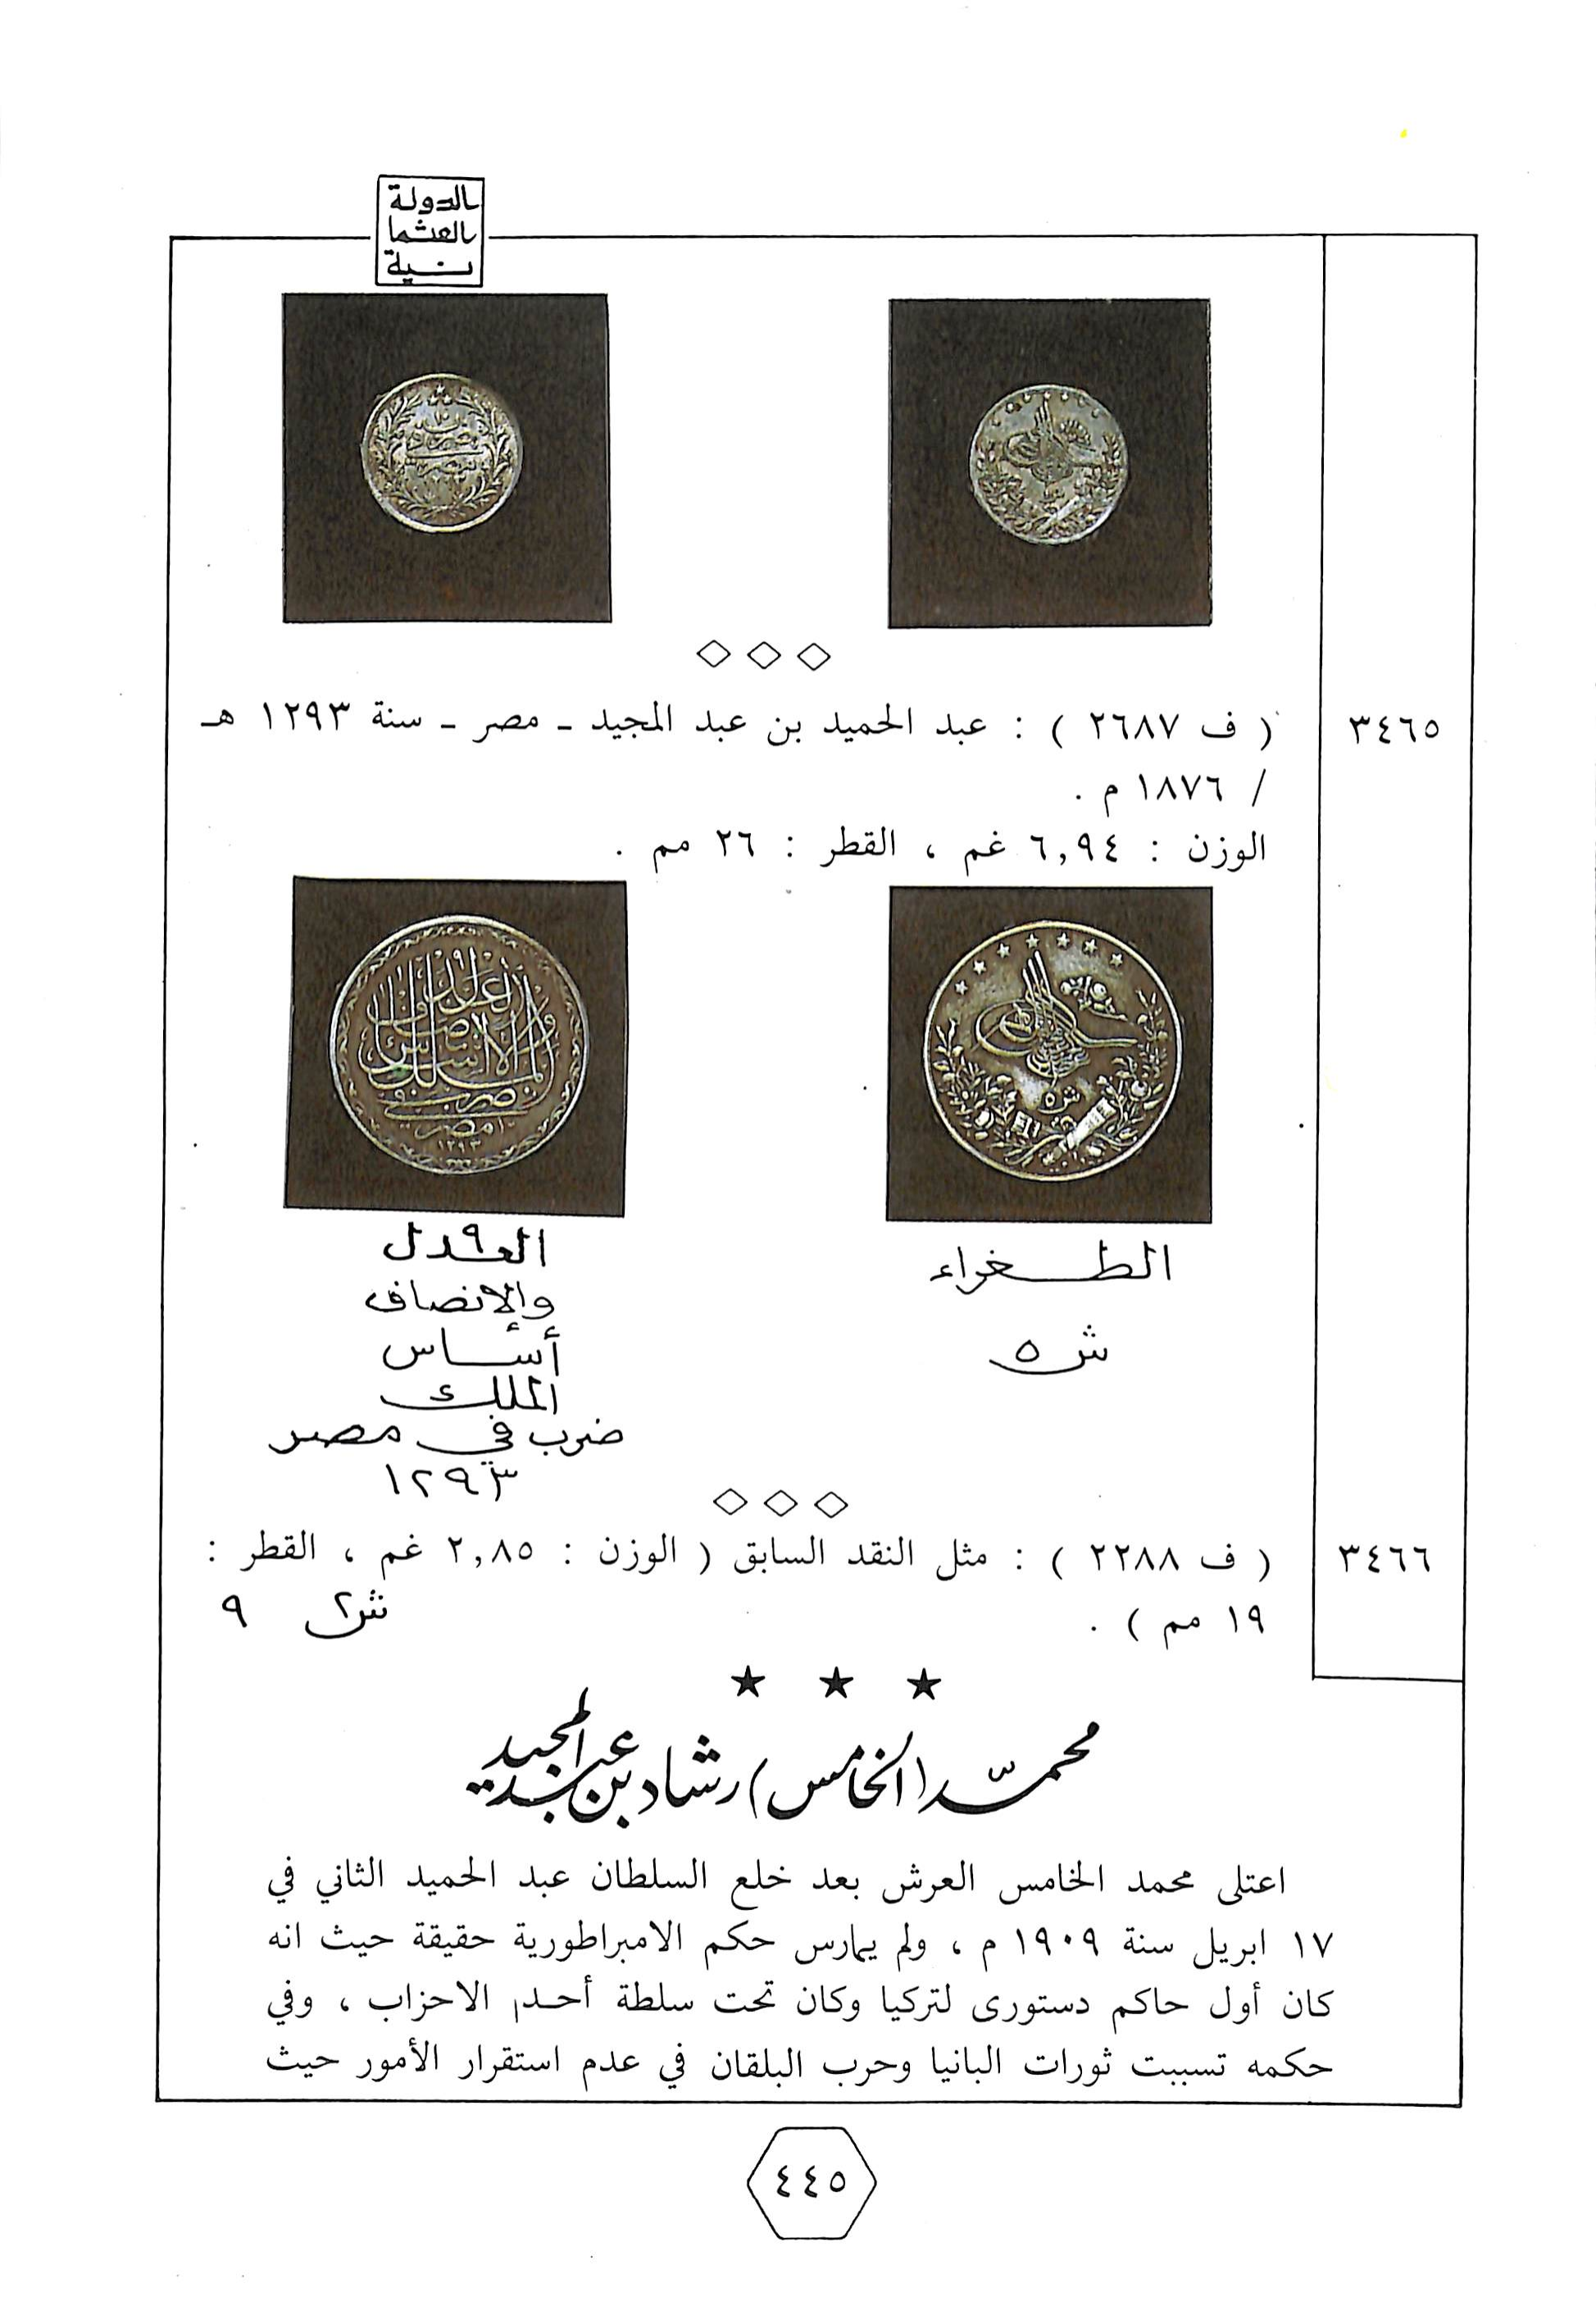 الدولة
العثما
نية
٣٤٦٥
( ف ٢٦٨٧ ) : عبد الحميد بن عبد المجيد ـ مصر ـ سنة ١٢٩٣ هـ
/ ١٨٧٦ م .
الوزن : ٦,٩٤ غم ، القطر : ٢٦ مم .
الطغراء
ش ٥
٩
العدل
والإنصاف
أساس
الملك
ضرب في مصر
١٢٩٣
٣٤٦٦
( ف ٢٢٨٨ ) : مثل النقد السابق ( الوزن : ٢,٨٥ غم ، القطر :
١٩ مم ) . ش ٢ ٩
محمد (الخامس) رشاد بن عبد المجيد
اعتلى محمد الخامس العرش بعد خلع السلطان عبد الحميد الثاني في
١٧ ابريل سنة ١٩٠٩ م ، ولم يمارس حكم الامبراطورية حقيقة حيث انه
كان أول حاكم دستورى لتركيا وكان تحت سلطة أحد الاحزاب ، وفي
حكمه تسببت ثورات البانيا وحرب البلقان في عدم استقرار الأمور حيث
٤٤٥